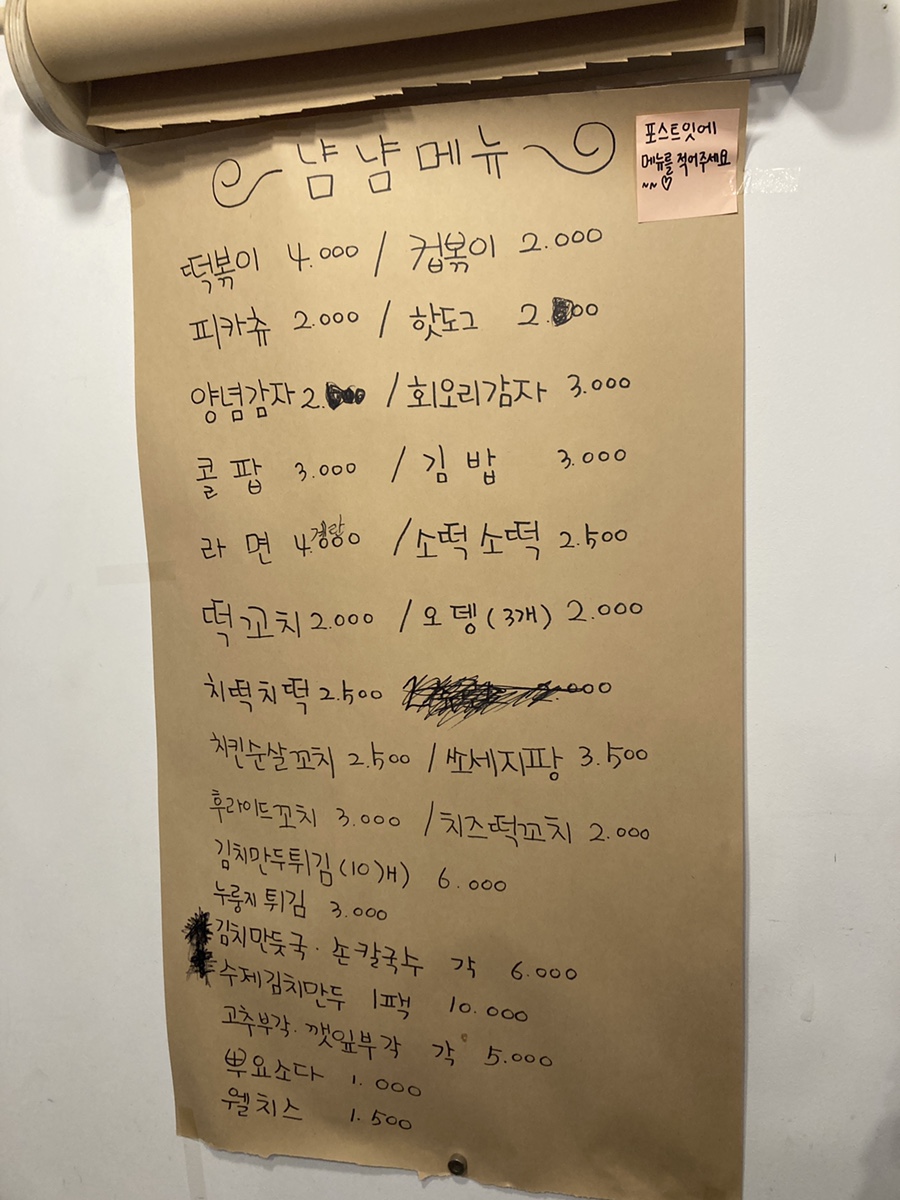 냠냠메뉴
포스트잇에
메뉴를 적어주세요
~~♡
떡볶이 4.000 / 컵볶이 2.000
피카츄 2.000 / 핫도그 2.00
양념감자 2. / 회오리감자 3.000
콜팝 3.000 / 김밥 3.000
라면 4. 0 / 소떡소떡 2.500
떡꼬치 2.000 / 오뎅(3개) 2.000
치떡치떡 2.500
치킨순살꼬치 2.500 / 쏘세지팡 3.500
후라이드꼬치 3.000 / 치즈떡꼬치 2.000
김치만두튀김(10개) 6.000
누룽지튀김 3.000
김치만둣국·손칼국수 각 6.000
수제김치만두 1팩 10.000
고추부각·깻잎부각 각 5.000
뿌요소다 1.000
웰치스 1.500